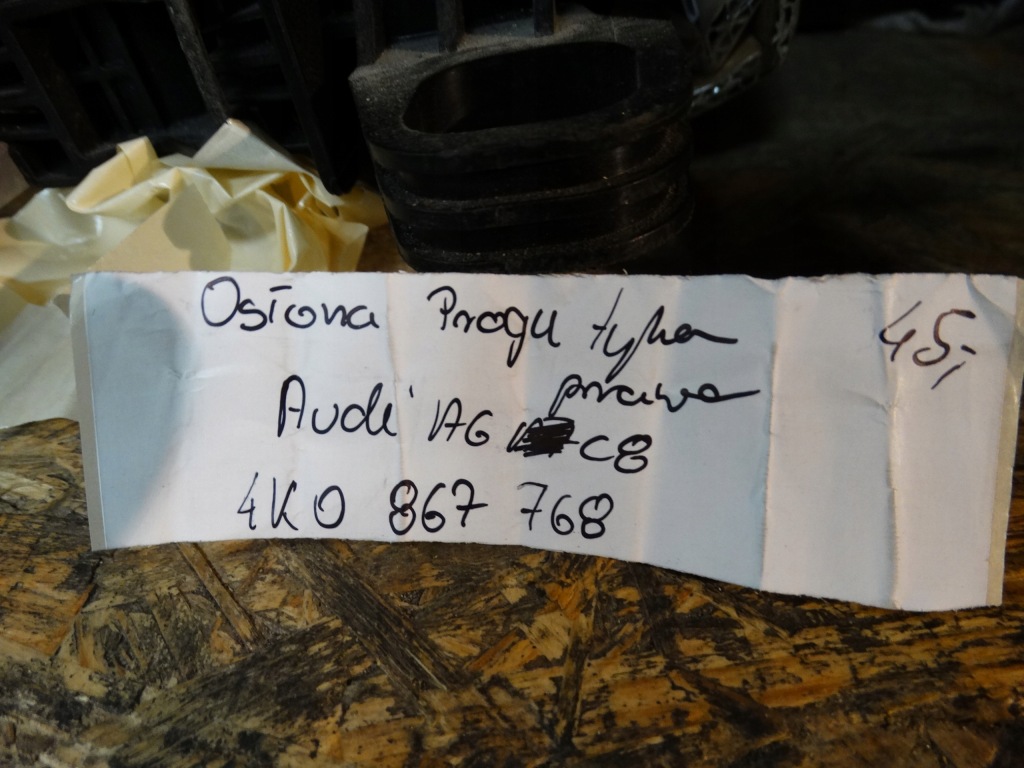 Osłona Progu tylna 45,-
prawa
Audi A6 C8
4K0 867 768